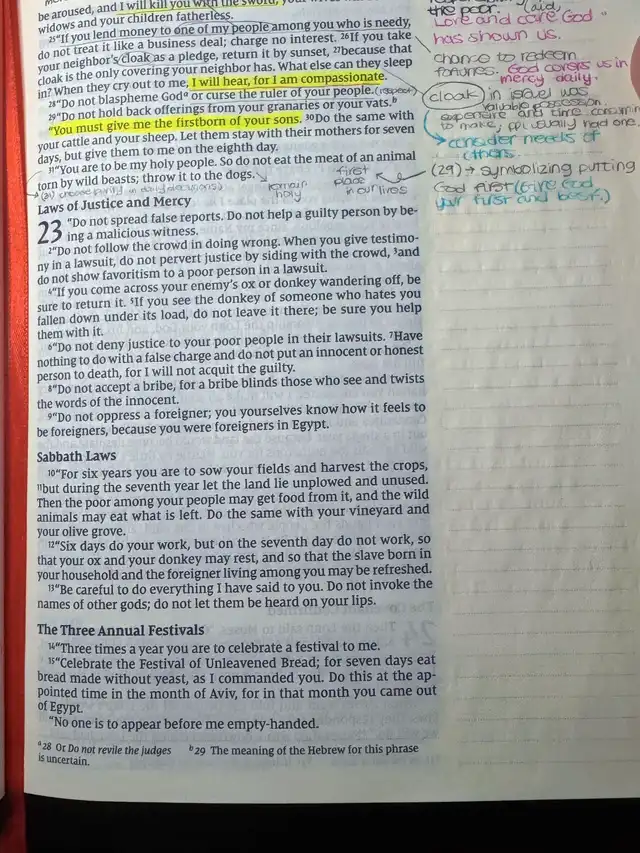 be aroused, and I will kill you with the sword,
widows and your children fatherless.
25“If you lend money to one of my people among you who is needy,
do not treat it like a business deal; charge no interest. 26If you take
your neighbor’s cloak as a pledge, return it by sunset, 27because that
cloak is the only covering your neighbor has. What else can they sleep
in? When they cry out to me, I will hear, for I am compassionate.
28“Do not blaspheme Goda or curse the ruler of your people. (respect)
29“Do not hold back offerings from your granaries or your vats.b
“You must give me the firstborn of your sons. 30Do the same with
your cattle and your sheep. Let them stay with their mothers for seven
days, but give them to me on the eighth day.
31“You are to be my holy people. So do not eat the meat of an animal
torn by wild beasts; throw it to the dogs.
(31) choose purity in daily decisions)
remain
holy
first
place
in our lives
Laws of Justice and Mercy
23 “Do not spread false reports. Do not help a guilty person by be-
ing a malicious witness.
2“Do not follow the crowd in doing wrong. When you give testimo-
ny in a lawsuit, do not pervert justice by siding with the crowd, 3and
do not show favoritism to a poor person in a lawsuit.
4“If you come across your enemy’s ox or donkey wandering off, be
sure to return it. 5If you see the donkey of someone who hates you
fallen down under its load, do not leave it there; be sure you help
them with it.
6“Do not deny justice to your poor people in their lawsuits. 7Have
nothing to do with a false charge and do not put an innocent or honest
person to death, for I will not acquit the guilty.
8“Do not accept a bribe, for a bribe blinds those who see and twists
the words of the innocent.
9“Do not oppress a foreigner; you yourselves know how it feels to
be foreigners, because you were foreigners in Egypt.
Sabbath Laws
10“For six years you are to sow your fields and harvest the crops,
11but during the seventh year let the land lie unplowed and unused.
Then the poor among your people may get food from it, and the wild
animals may eat what is left. Do the same with your vineyard and
your olive grove.
12“Six days do your work, but on the seventh day do not work, so
that your ox and your donkey may rest, and so that the slave born in
your household and the foreigner living among you may be refreshed.
13“Be careful to do everything I have said to you. Do not invoke the
names of other gods; do not let them be heard on your lips.
The Three Annual Festivals
14“Three times a year you are to celebrate a festival to me.
15“Celebrate the Festival of Unleavened Bread; for seven days eat
bread made without yeast, as I commanded you. Do this at the ap-
pointed time in the month of Aviv, for in that month you came out
of Egypt.
“No one is to appear before me empty-handed.
a28 Or Do not revile the judges b29 The meaning of the Hebrew for this phrase
is uncertain.
the poor. (aid,
Love and care God
has shown us.
chance to redeem
fortunes. God covers us in
mercy daily.
cloak in israel was
valuable possession.
expensive and time consuming
to make, ppl usually had one.
consider needs of
others.
(29) → symbolizing putting
God first (Give God
your first and best.)